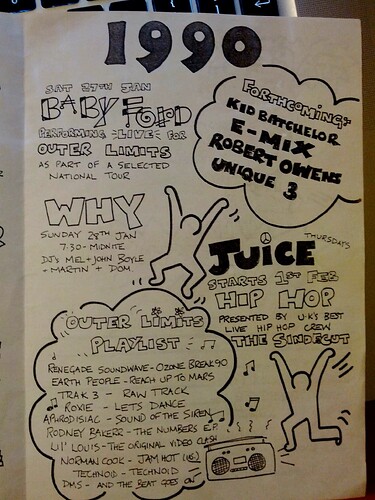 1990
SAT 27TH JAN
BABY FORD
PERFORMING LIVE FOR
OUTER LIMITS
AS PART OF A SELECTED
NATIONAL TOUR
FORTHCOMING:-
KID BATCHELOR
E-MIX
ROBERT OWENS
UNIQUE 3
WHY
SUNDAY 28TH JAN
7:30-MIDNITE
DJ's MEL + JOHN BOYLE
- MARTIN + DOM.
THURSDAYS
JUICE
STARTS 1ST FEB
HIP HOP
PRESENTED BY U.K'S BEST
LIVE HIP HOP CREW
THE SINDECUT
OUTER LIMITS
PLAYLIST
RENEGADE SOUNDWAVE - OZONE BREAK 90
EARTH PEOPLE - REACH UP TO MARS
TRAK 3 - RAW TRACK
ROXIE - LETS DANCE
APHRODISIAC - SOUND OF THE SIREN
RODNEY BAKERR - THE NUMBERS E.P.
LIL' LOUIS - THE ORIGINAL VIDEO CLASH
NORMAN COOK - JAM HOT (US)
TECHNOID - TECHNOID
DMS - AND THE BEAT GOES ON